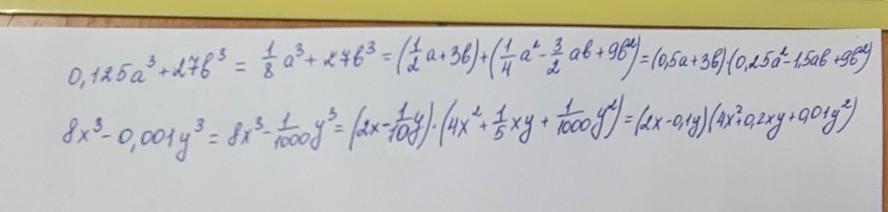 0,125a³+27b³ = 1/8 a³+27b³ = (1/2 a+3b)+(1/4 a²-3/2 ab+9b²)=(0,5a+3b)·(0,25a²-1,5ab+9b²)
8x³-0,001y³=8x³-1/1000 y³=(2x-1/10 y)·(4x²+1/5 xy+1/1000 y²)=(2x-0,1y)(4x²+0,2xy+0,01y²)